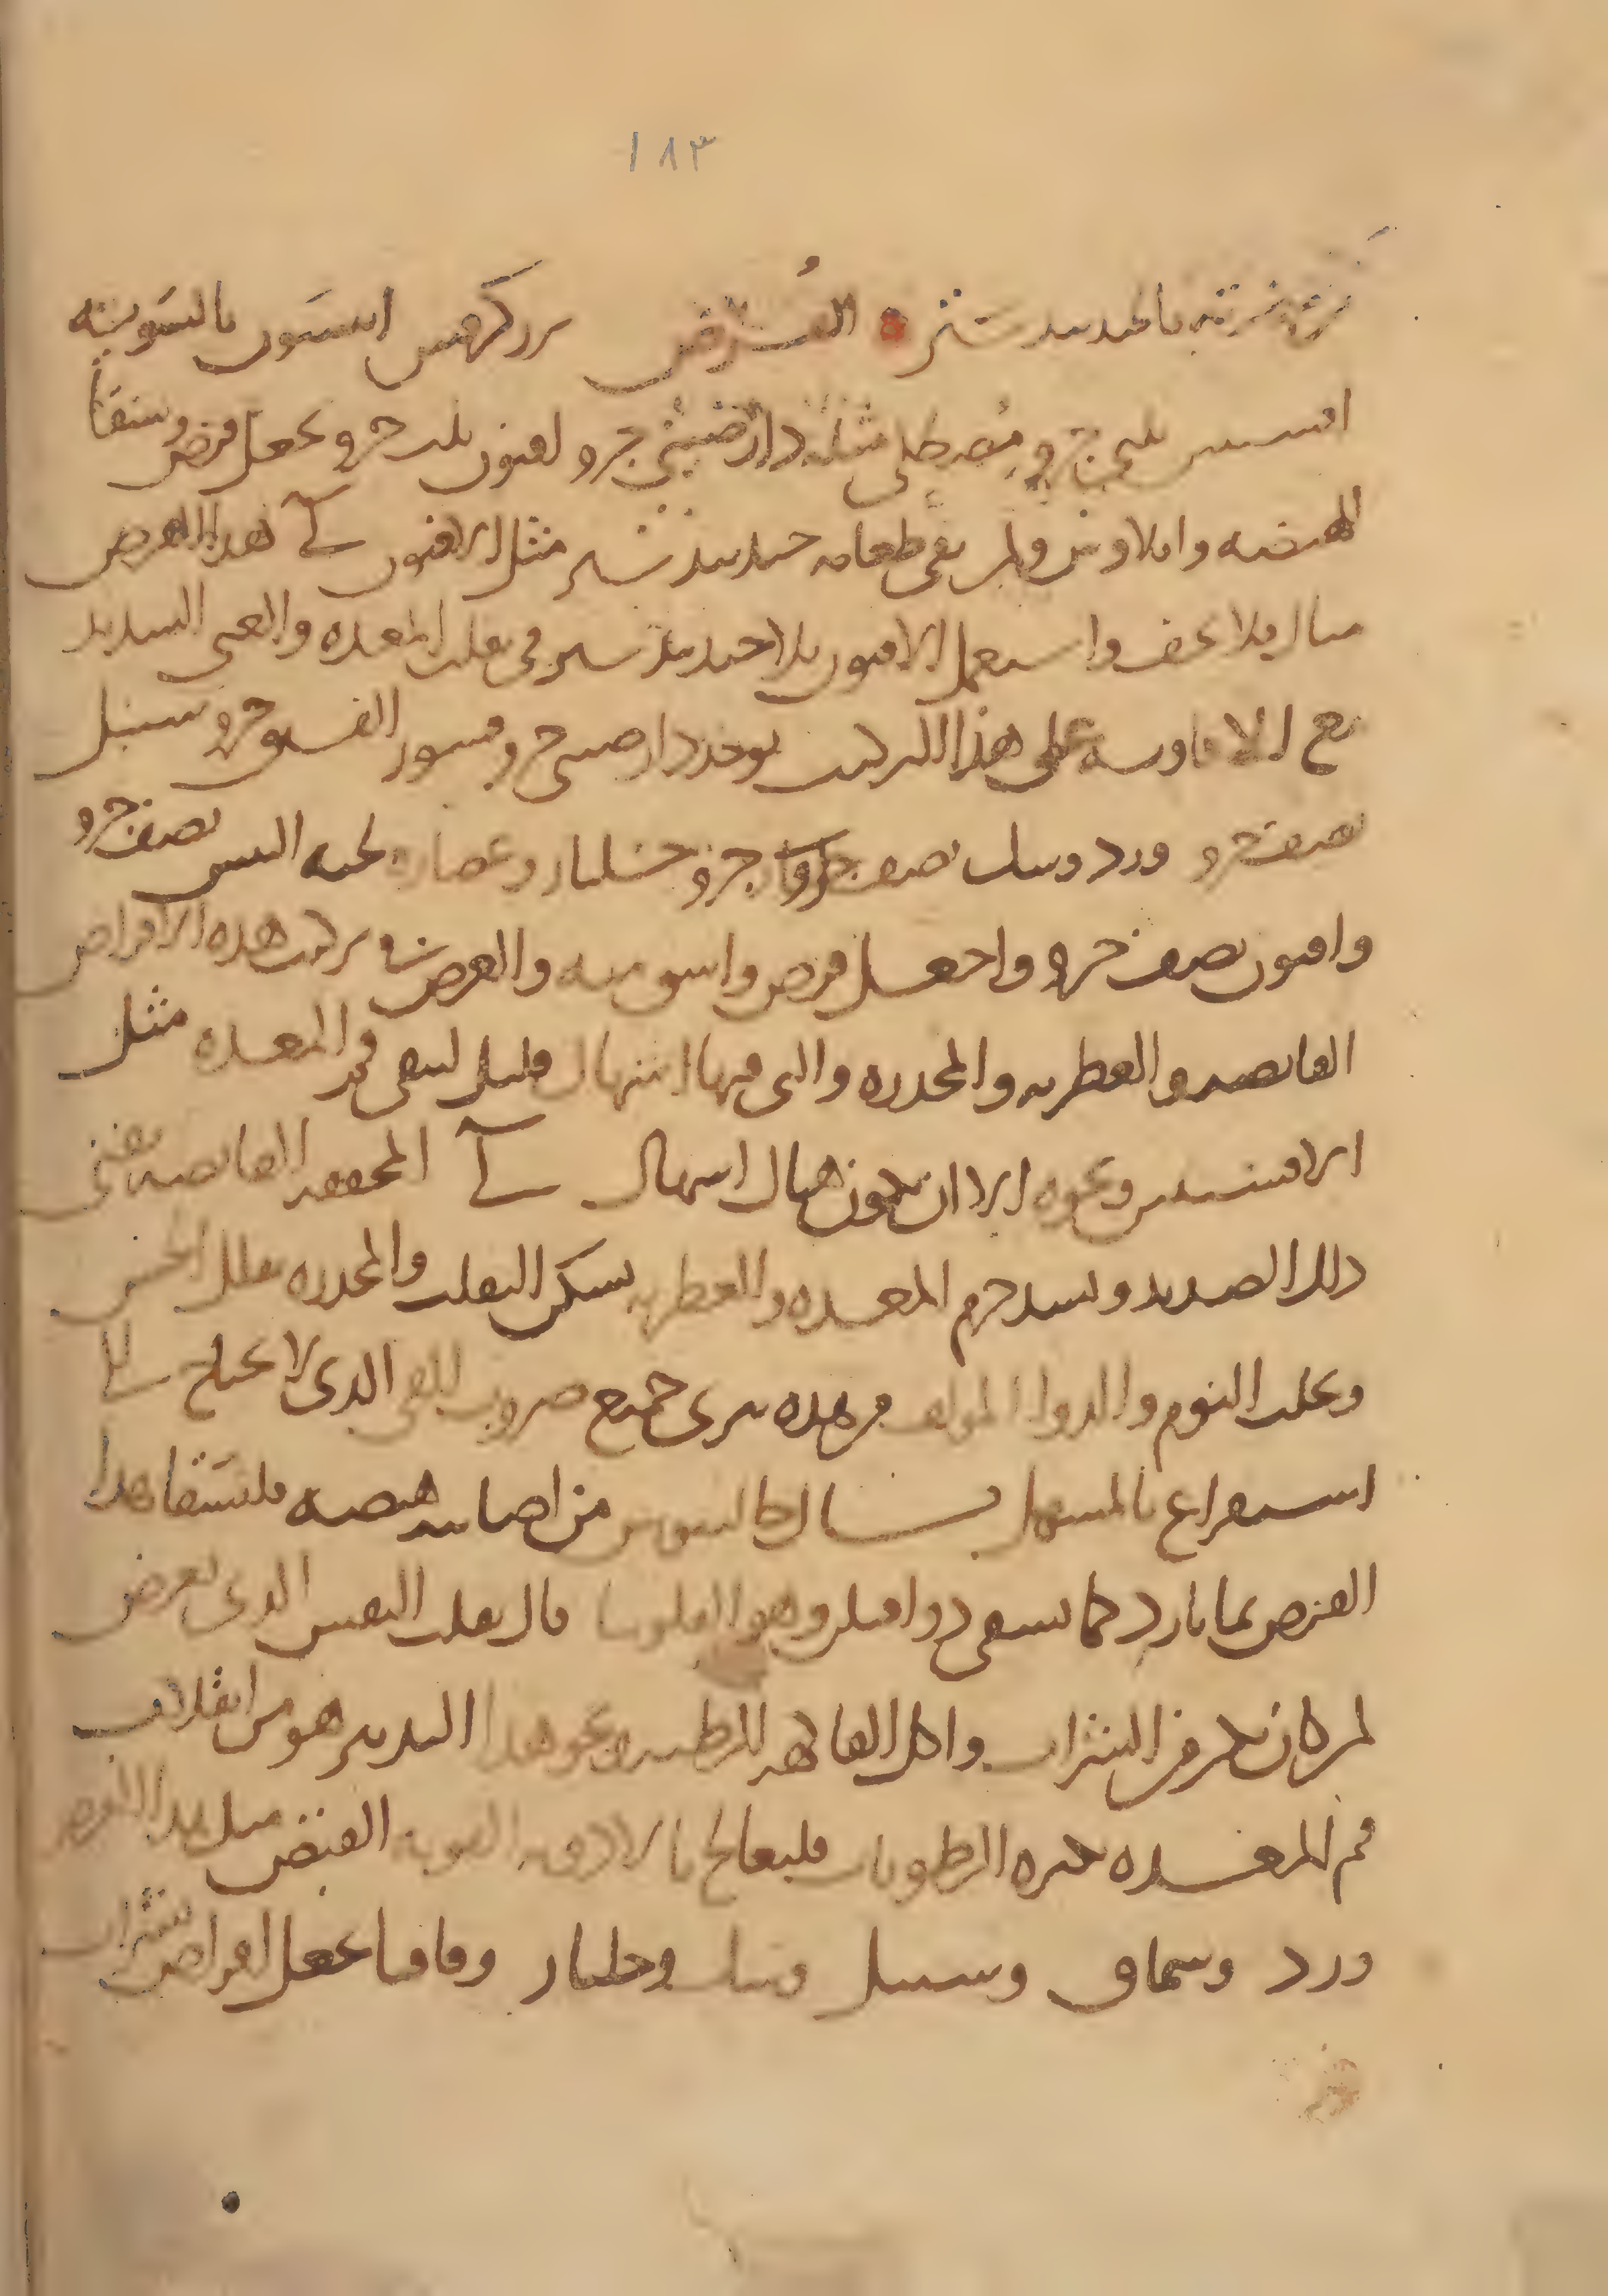 ١٨٣
القرص بزر كرفس انيسون بالسوية
افسنتين ثلثي جزو مصطكى مثله دارصيني جزو افيون ثلث جزو يجعل قرص ويسقا
الهيضه وايلاوس ولمن يقي طعامه جندبيدستر مثل الافيون لى هذا القرص
مبال فلا تخف واستعمل الافيون بلا جندبيدستر في تقلب المعده والقى الشديد
مع الافاويه على هذا التركيب يوخذ دارصيني جزو قشور الفستق جزو سنبل
نصف جزو ورد وسك نصف جزو جزو جلنار وعصاره لحيه التيس نصف جزو
وافيون نصف جزو واجعل قرص واسق منه والغرض في تركيب هذه الاقراص
القابضه والعطريه والمخدره والتى فيها اسهال قليل لينقى فم المعده مثل
الافسنتين ونحوه الا ان يكون هناك اسهال لى المجففه القابضه تفنى
ذلك الصديد وتشد جرم المعده والعطريه تسكن التقلب والمخدره تقلل الحس
وتجلب النوم والدوا المولف من هذه يبرى جميع ضروب القى الذى لا يحتاج الى
استفراغ بالمسهل قال جالينوس من اصابته هيضه فليسقا هذا
القرص بما بارد كما يسقى دوا فيلن وهو الفلونيا قال تقلب النفس الذى يعرض
لمن كان يكثر من الشراب واكل الفاكهه الرطبه ونحو هذا التدبير هو من انقلاب
فم المعده لكثره الرطوبات فليعالج بالادويه القويه القبض مثل هذا القرص
ورد وسماق وسنبل وسك وجلنار وقاقيا يجعل اقراص بشراب